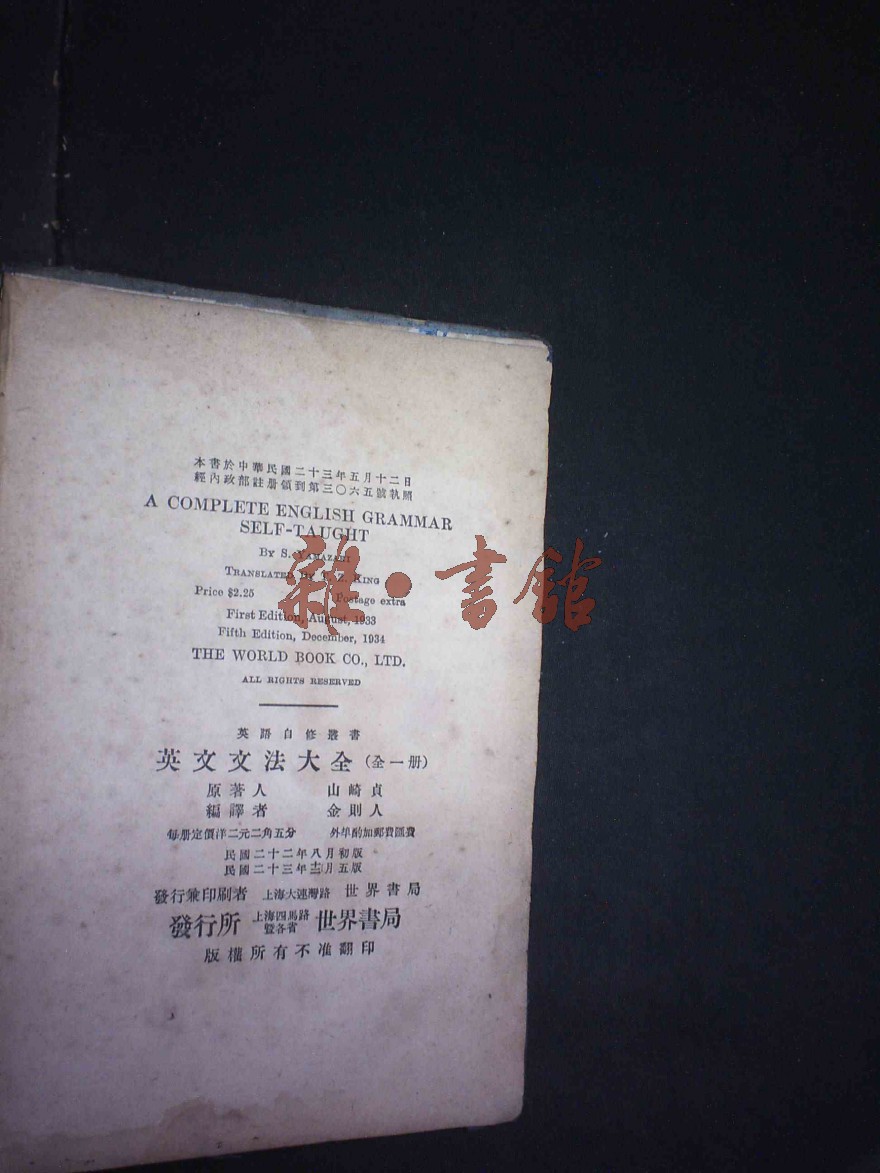 本書於中華民國二十三年五月十二日
經內政部註册領到第三〇六五號執照
A COMPLETE ENGLISH GRAMMAR
SELF-TAUGHT
BY S. YAMAZAKI
TRANSLATED BY T. Z. KING
Price $2.25 Postage extra
First Edition, August, 1933
Fifth Edition, December, 1934
THE WORLD BOOK CO., LTD.
ALL RIGHTS RESERVED
雜·書館
英語自修叢書
英文文法大全（全一册）
原著人 山崎貞
編譯者 金則人
每册定價洋二元二角五分 外埠酌加郵費匯費
民國二十二年八月初版
民國二十三年十二月五版
發行兼印刷者 上海大連灣路 世界書局
發行所 上海四馬路暨各省 世界書局
版權所有不准翻印